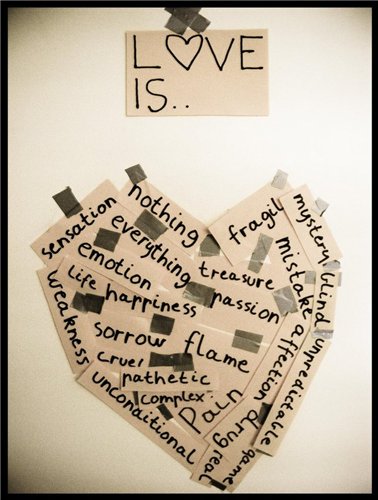 L♡VE
IS..
nothing
sensation
everything
emotion
life
happiness
weakness
sorrow
cruel
pathetic
complex
unconaitional
fragil
treasure
passion
flame
pain
mystery
mistake
blind
affection
drug
unpredictable
game
real